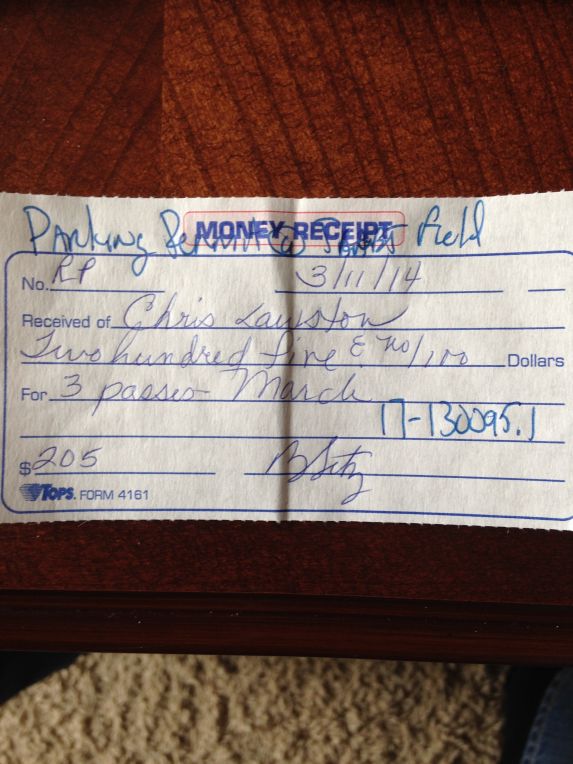 Parking Permit @ Field
MONEY RECEIPT
No. RP 3/11/14
Received of Chris Lawston
Two hundred five & no/100 Dollars
For 3 passes March
17-130095.1
$205
TOPS. FORM 4161